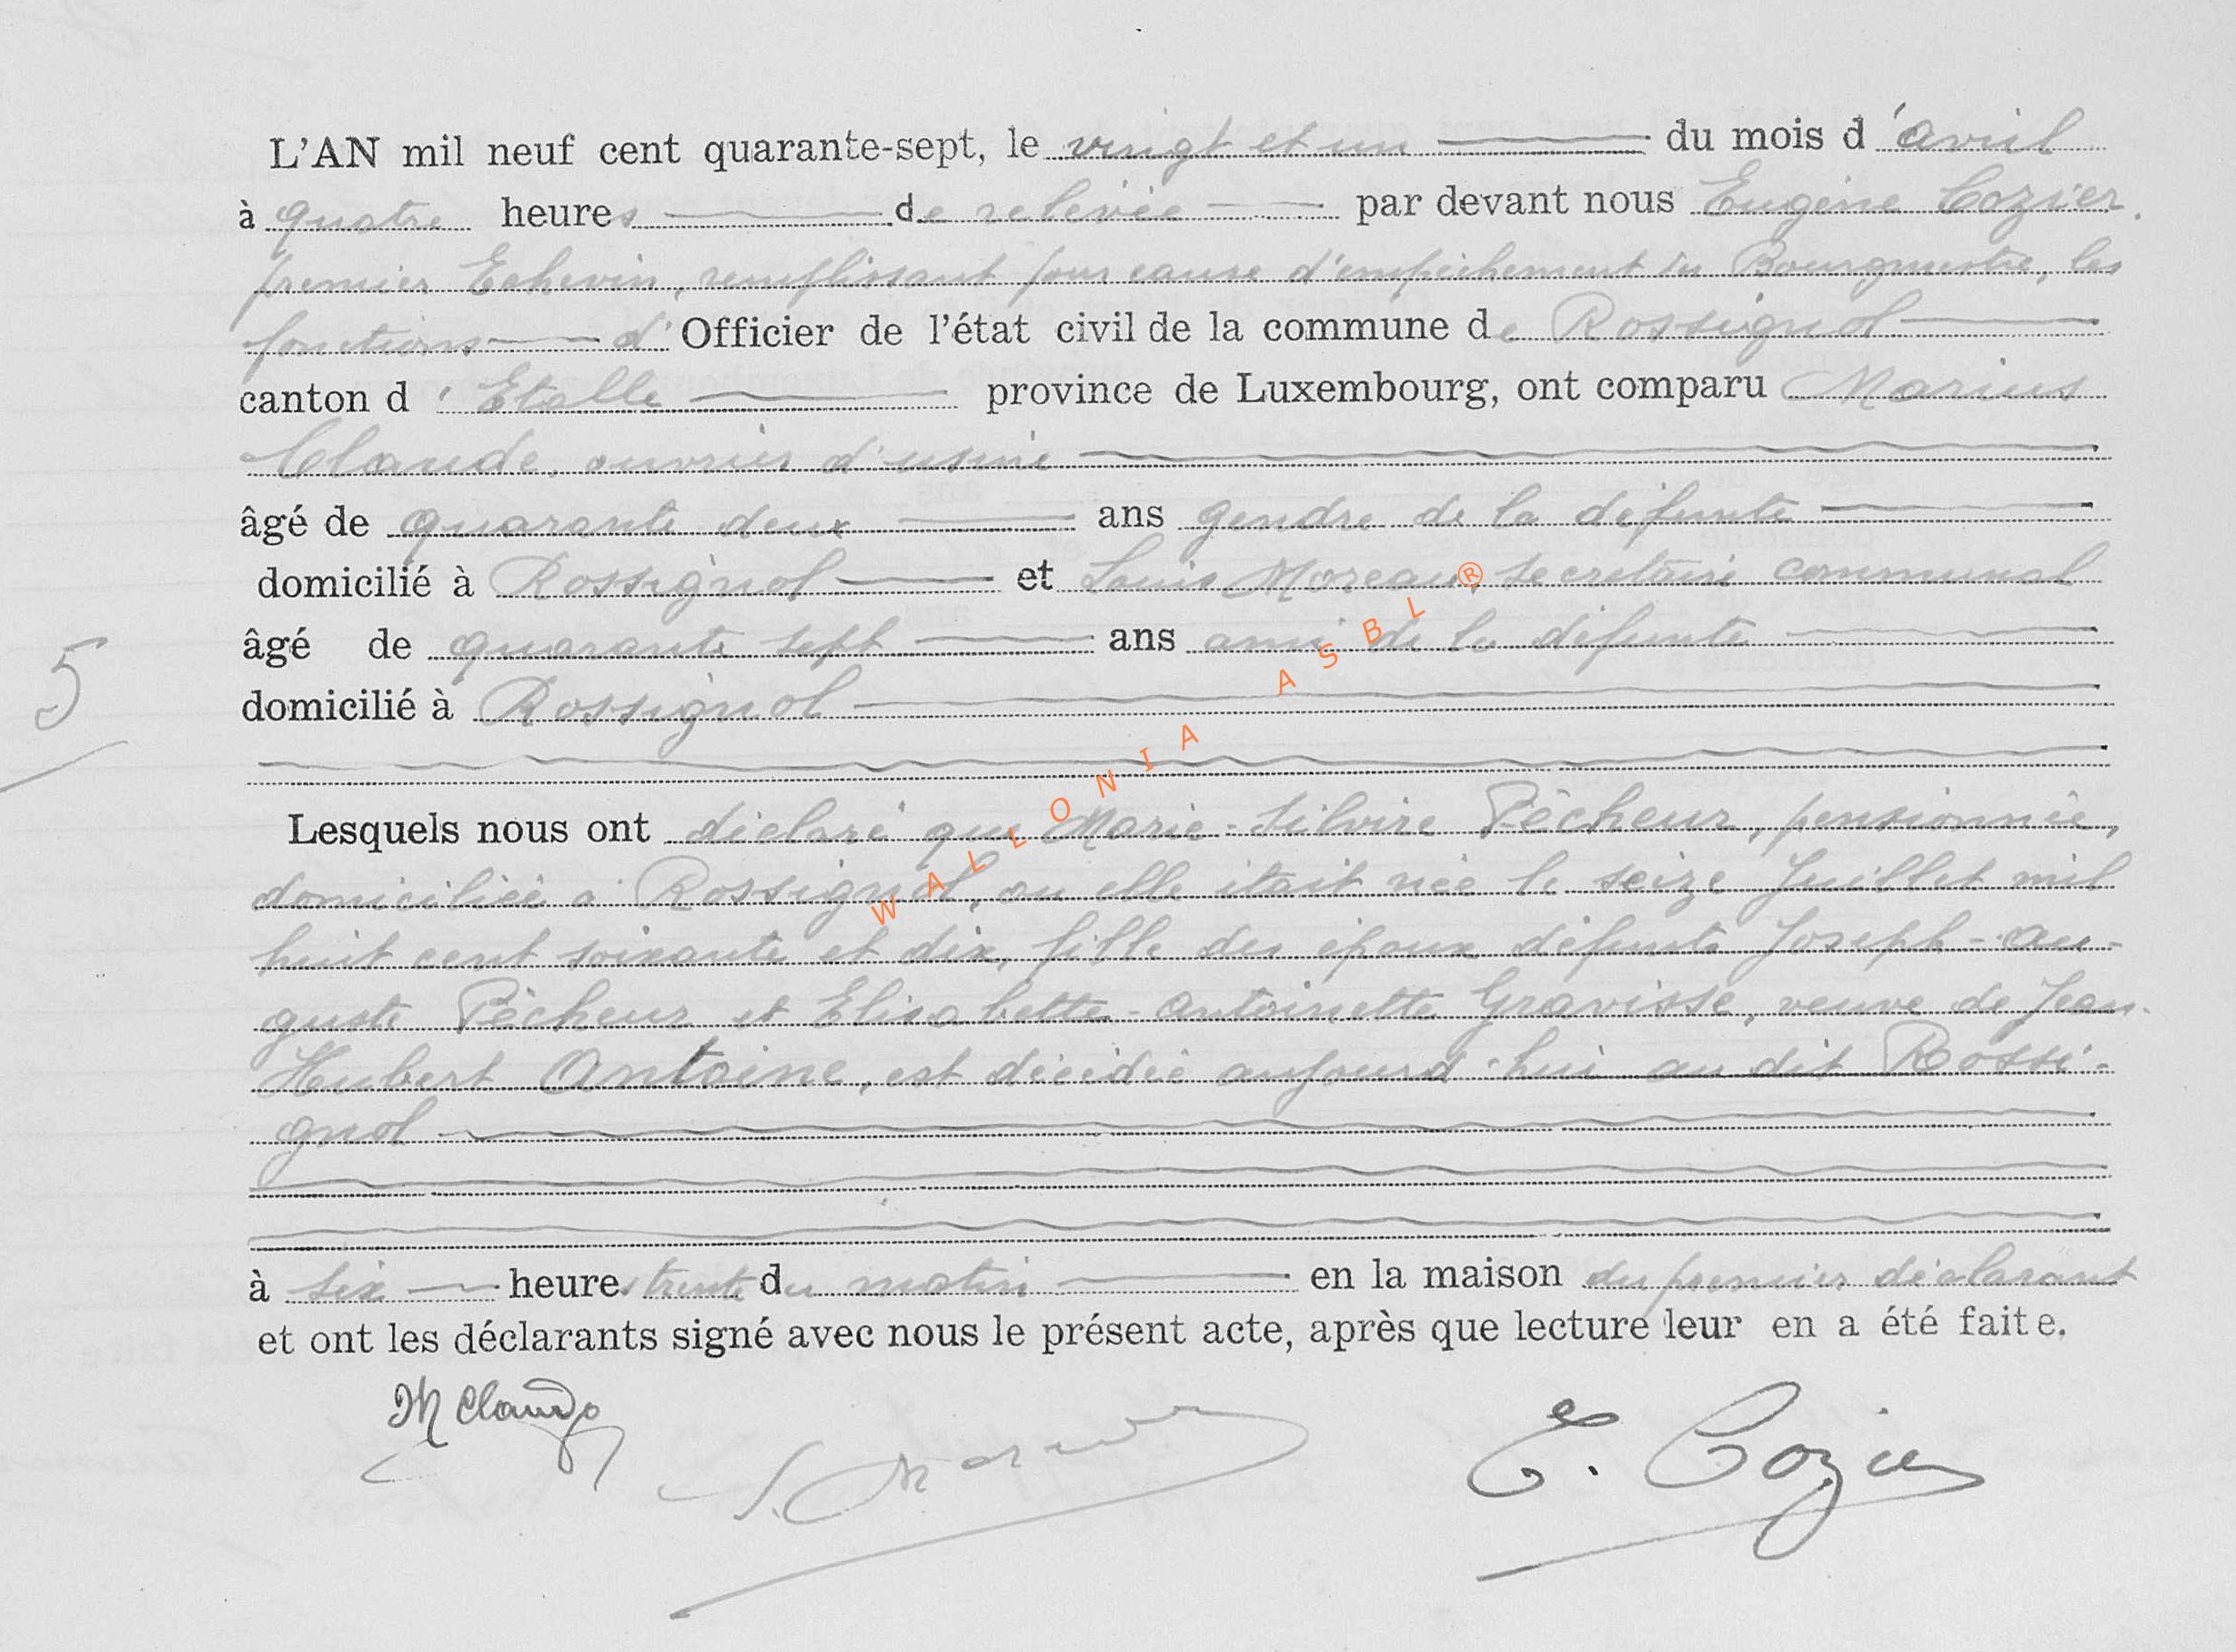 L'AN mil neuf cent quarante-sept, le vingt et un du mois d'avril
à quatre heures de relevée par devant nous Eugène Cozier,
premier Echevin, remplissant pour cause d'empêchement du Bourgmestre, les
fonctions d'Officier de l'état civil de la commune de Rossignol
canton d'Etalle province de Luxembourg, ont comparu Marius
Claude, ouvrier d'usine
âgé de quarante deux ans gendre de la défunte
domicilié à Rossignol et Louis Moreau, secrétaire communal
âgé de quarante sept ans ami de la défunte
5
domicilié à Rossignol
Lesquels nous ont déclaré que Marie-Silvire Pêcheur, pensionnée,
domiciliée à Rossignol, où elle était née le seize Juillet mil
huit cent soixante et dix, fille des époux défunts Joseph-Au-
guste Pêcheur et Elisabette-Antoinette Gravisse, veuve de Jean-
Hubert Antoine, est décédée aujourd'hui au dit Rossi-
gnol
à six heures trente du matin en la maison du premier déclarant
et ont les déclarants signé avec nous le présent acte, après que lecture leur en a été faite.
M Claude
E. Cozier
WALLONIA ASBL ®